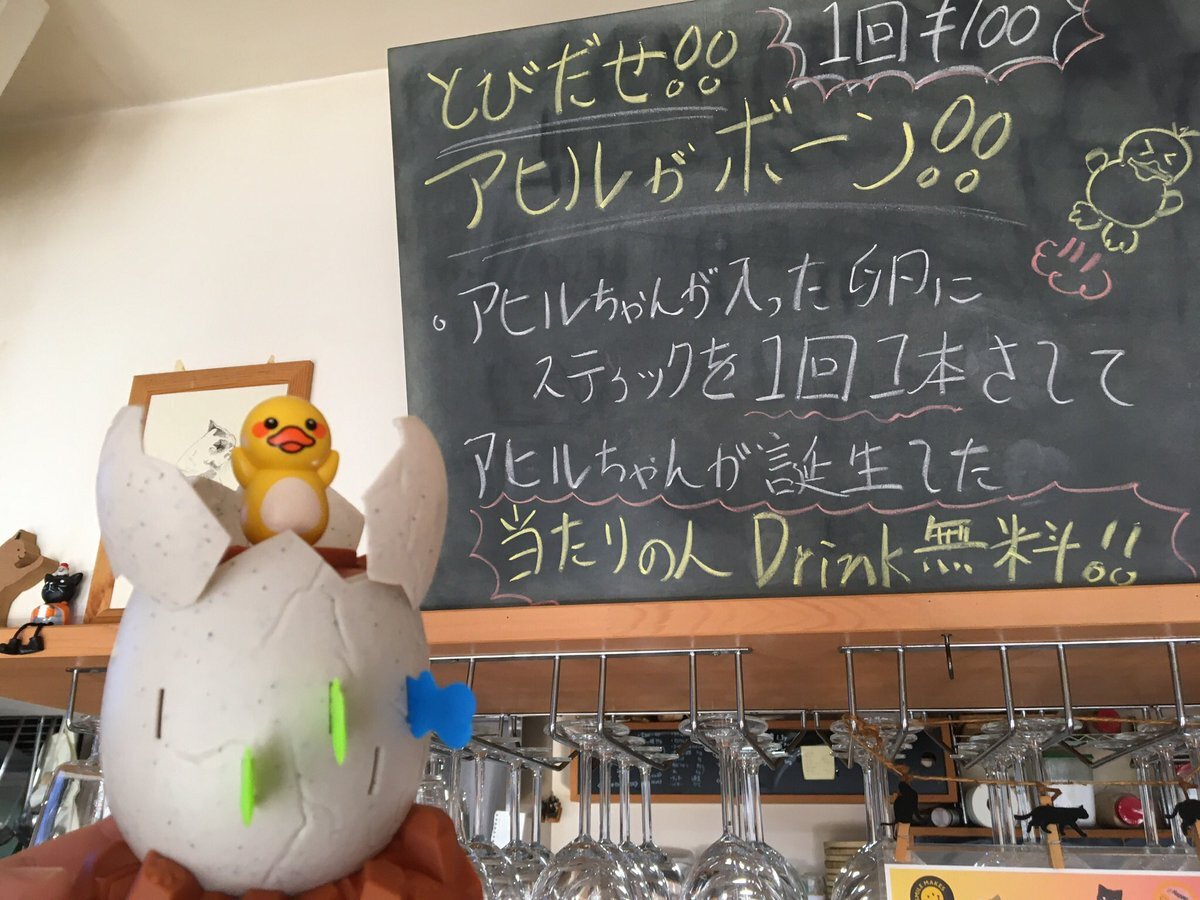 とびだせ!!
1回¥100
アヒルがボーン!!
。アヒルちゃんが入った卵に
スティックを1回1本さして
アヒルちゃんが誕生したら
当たりの人 Drink無料!!